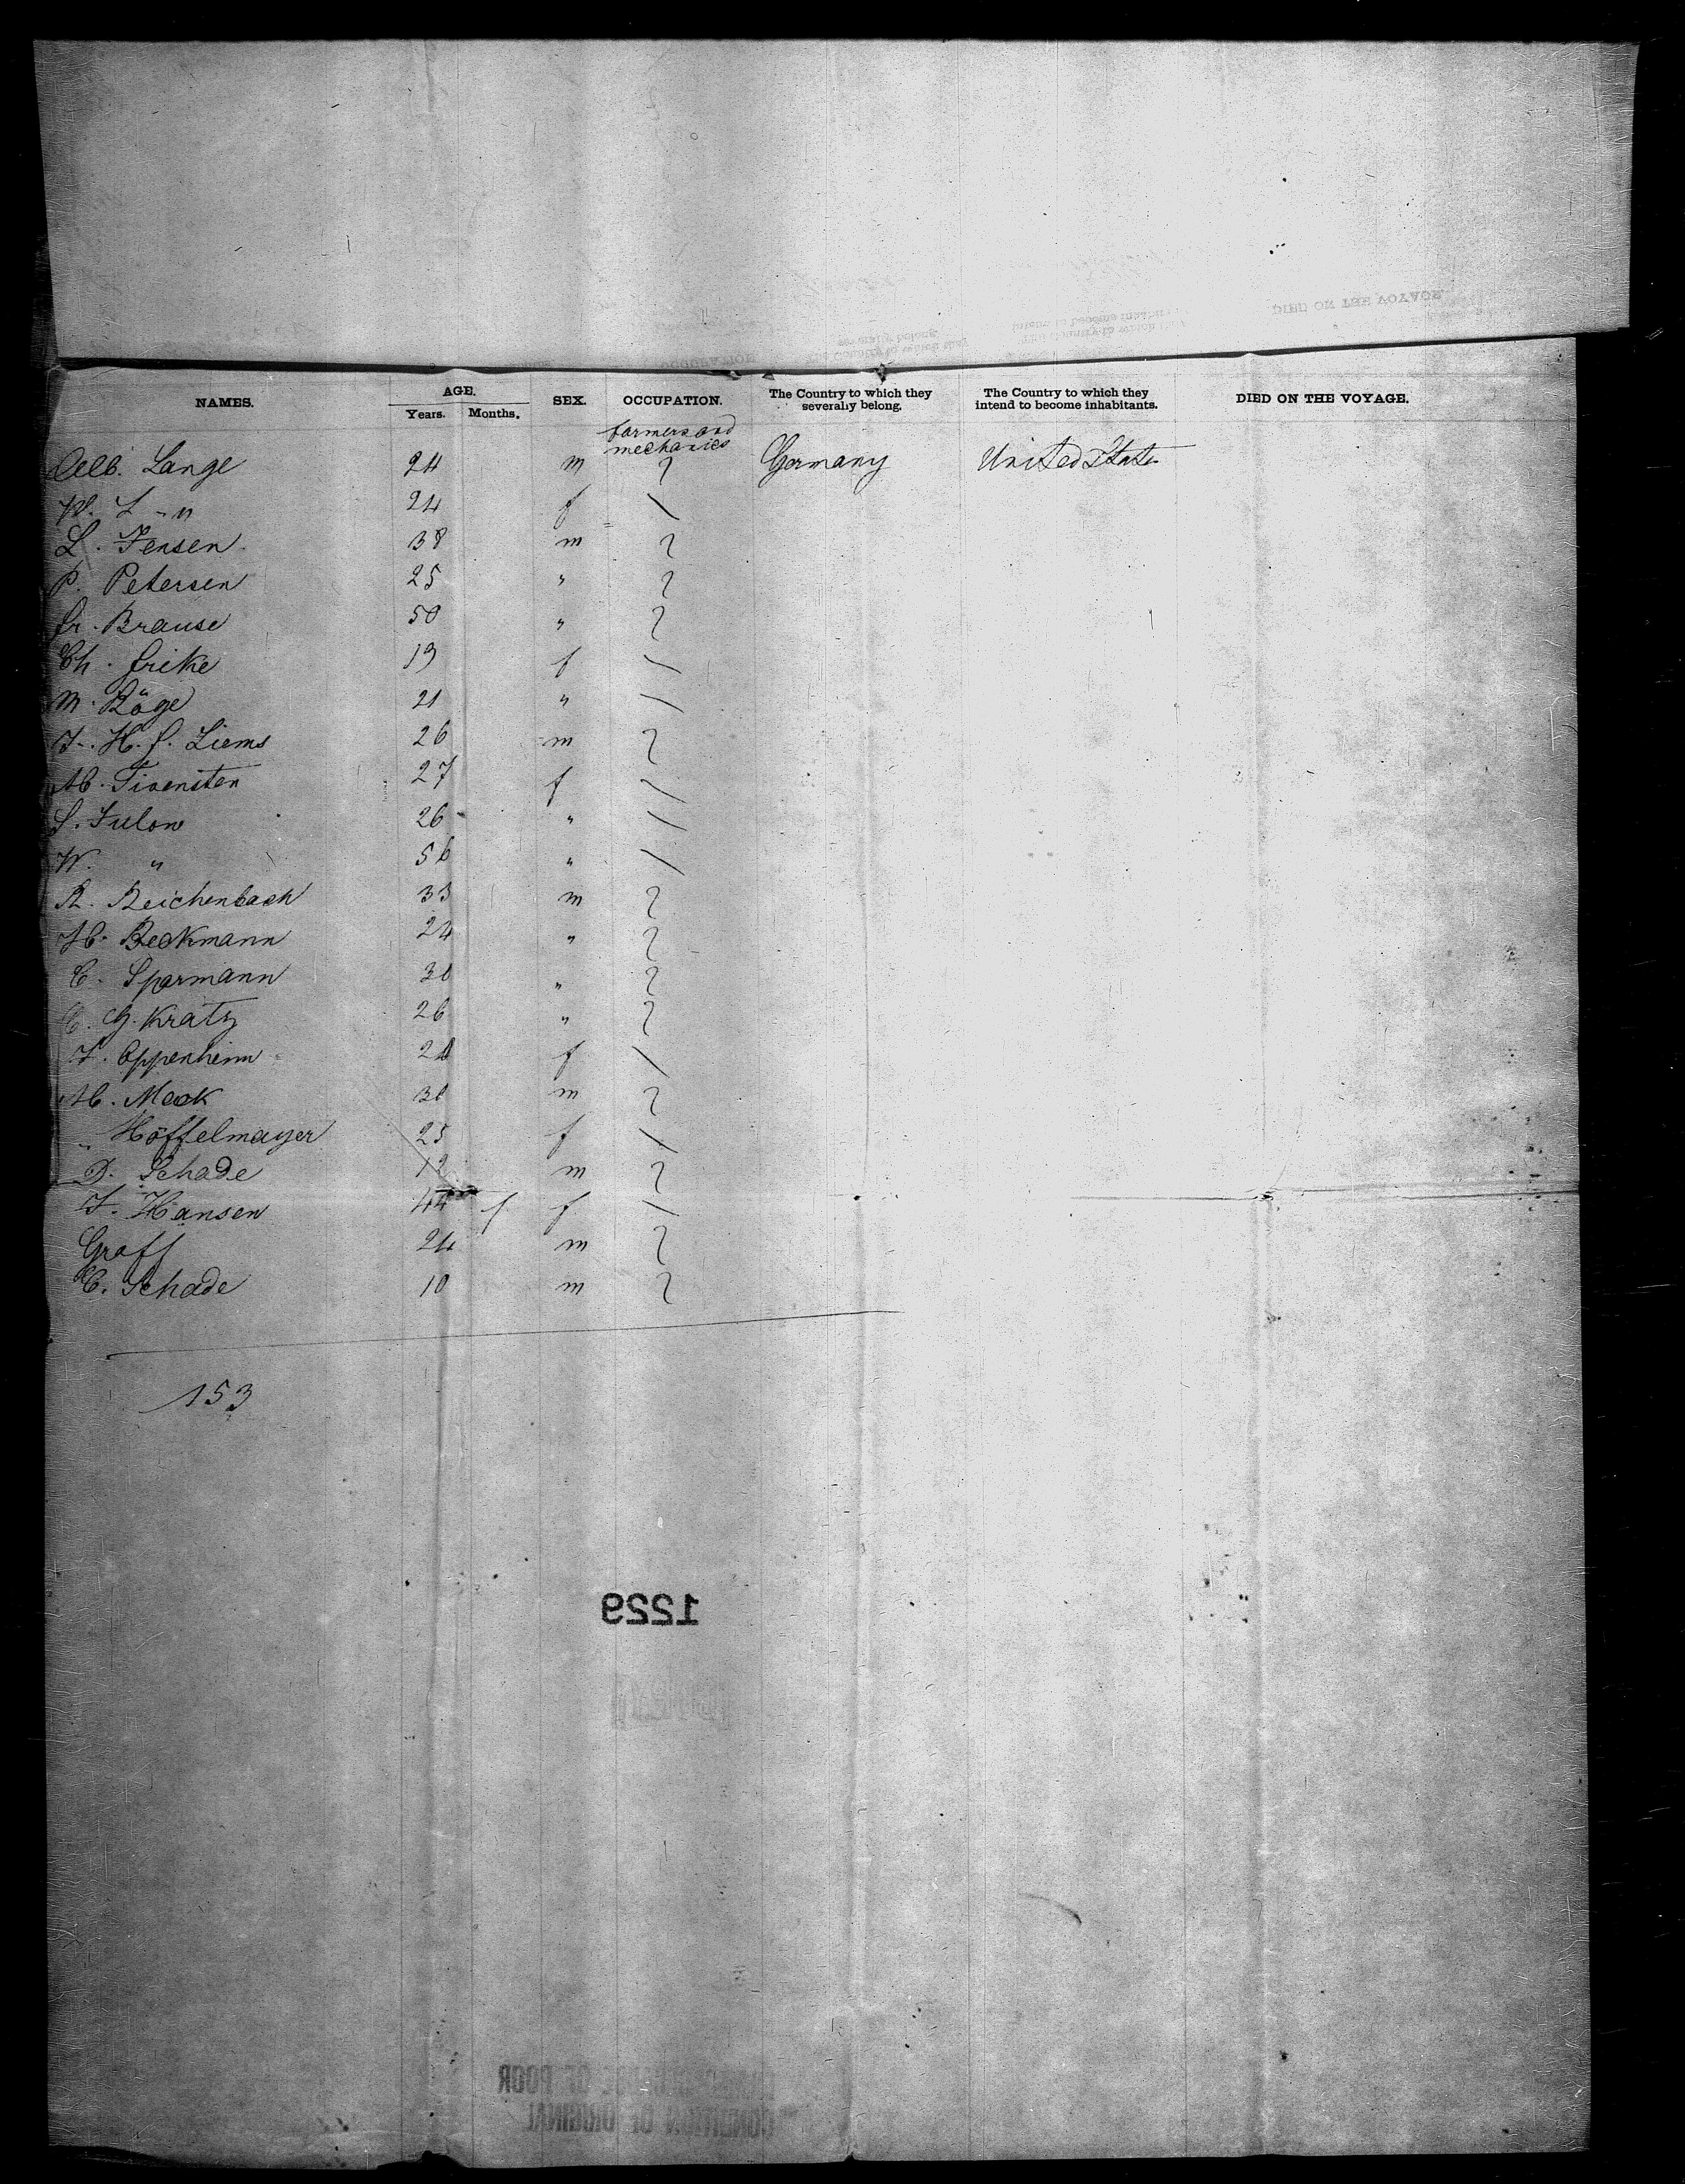 NAMES. AGE. Years. Months. SEX. OCCUPATION. The Country to which they severally belong. The Country to which they intend to become inhabitants. DIED ON THE VOYAGE.
farmers and
mechanics
Alb. Lange 24 m Germany United States
W. L " 24 f
L. Jensen 38 m
P. Petersen 25 "
Fr. Brause 50 "
Ch. Frike 19 f
M. Böge 21 "
J. H. F. Liems 26 m
M. 27 f
S. Julow 26 "
W. " 56 "
R. Reichenbach 33 m
H. Beckmann 24 "
C. Sparmann 30 "
C. G. Kratz 26 "
J. Oppenheim f
M. Mack 30 m
" Höffelmayer 25 f
D. Schade 12 m
J. Hansen 44 f
Graff 24 m
C. Schade 10 m
153
1229
CONDITION OF ORIGINAL